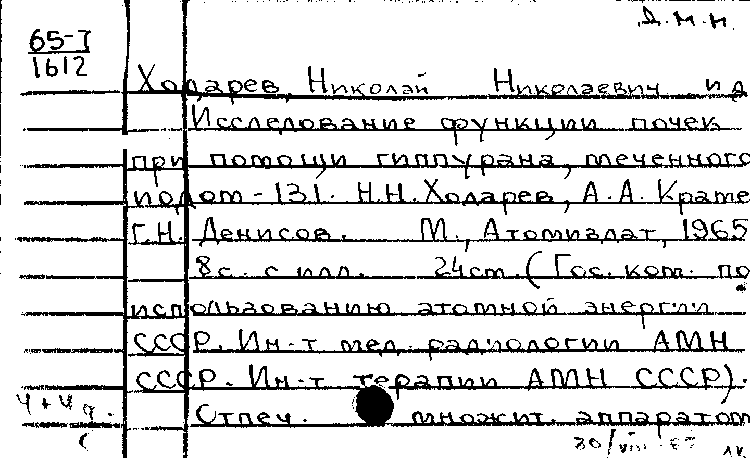 Д.М.Н.
65-7
1612
Ходарев, Николай Николаевич и д
Исследование функции почек
при помощи гиппурана, меченного
иодом-131. Н.Н. Ходарев, А.А. Крате
Г.Н. Денисов. М., Атомиздат, 1965
8с. с илл. 24см. (Гос. ком. по
использованию атомной энергии
СССР. Ин-т мед. радиологии АМН
СССР. Ин-т терапии АМН СССР).
Отпеч. множит. аппаратом